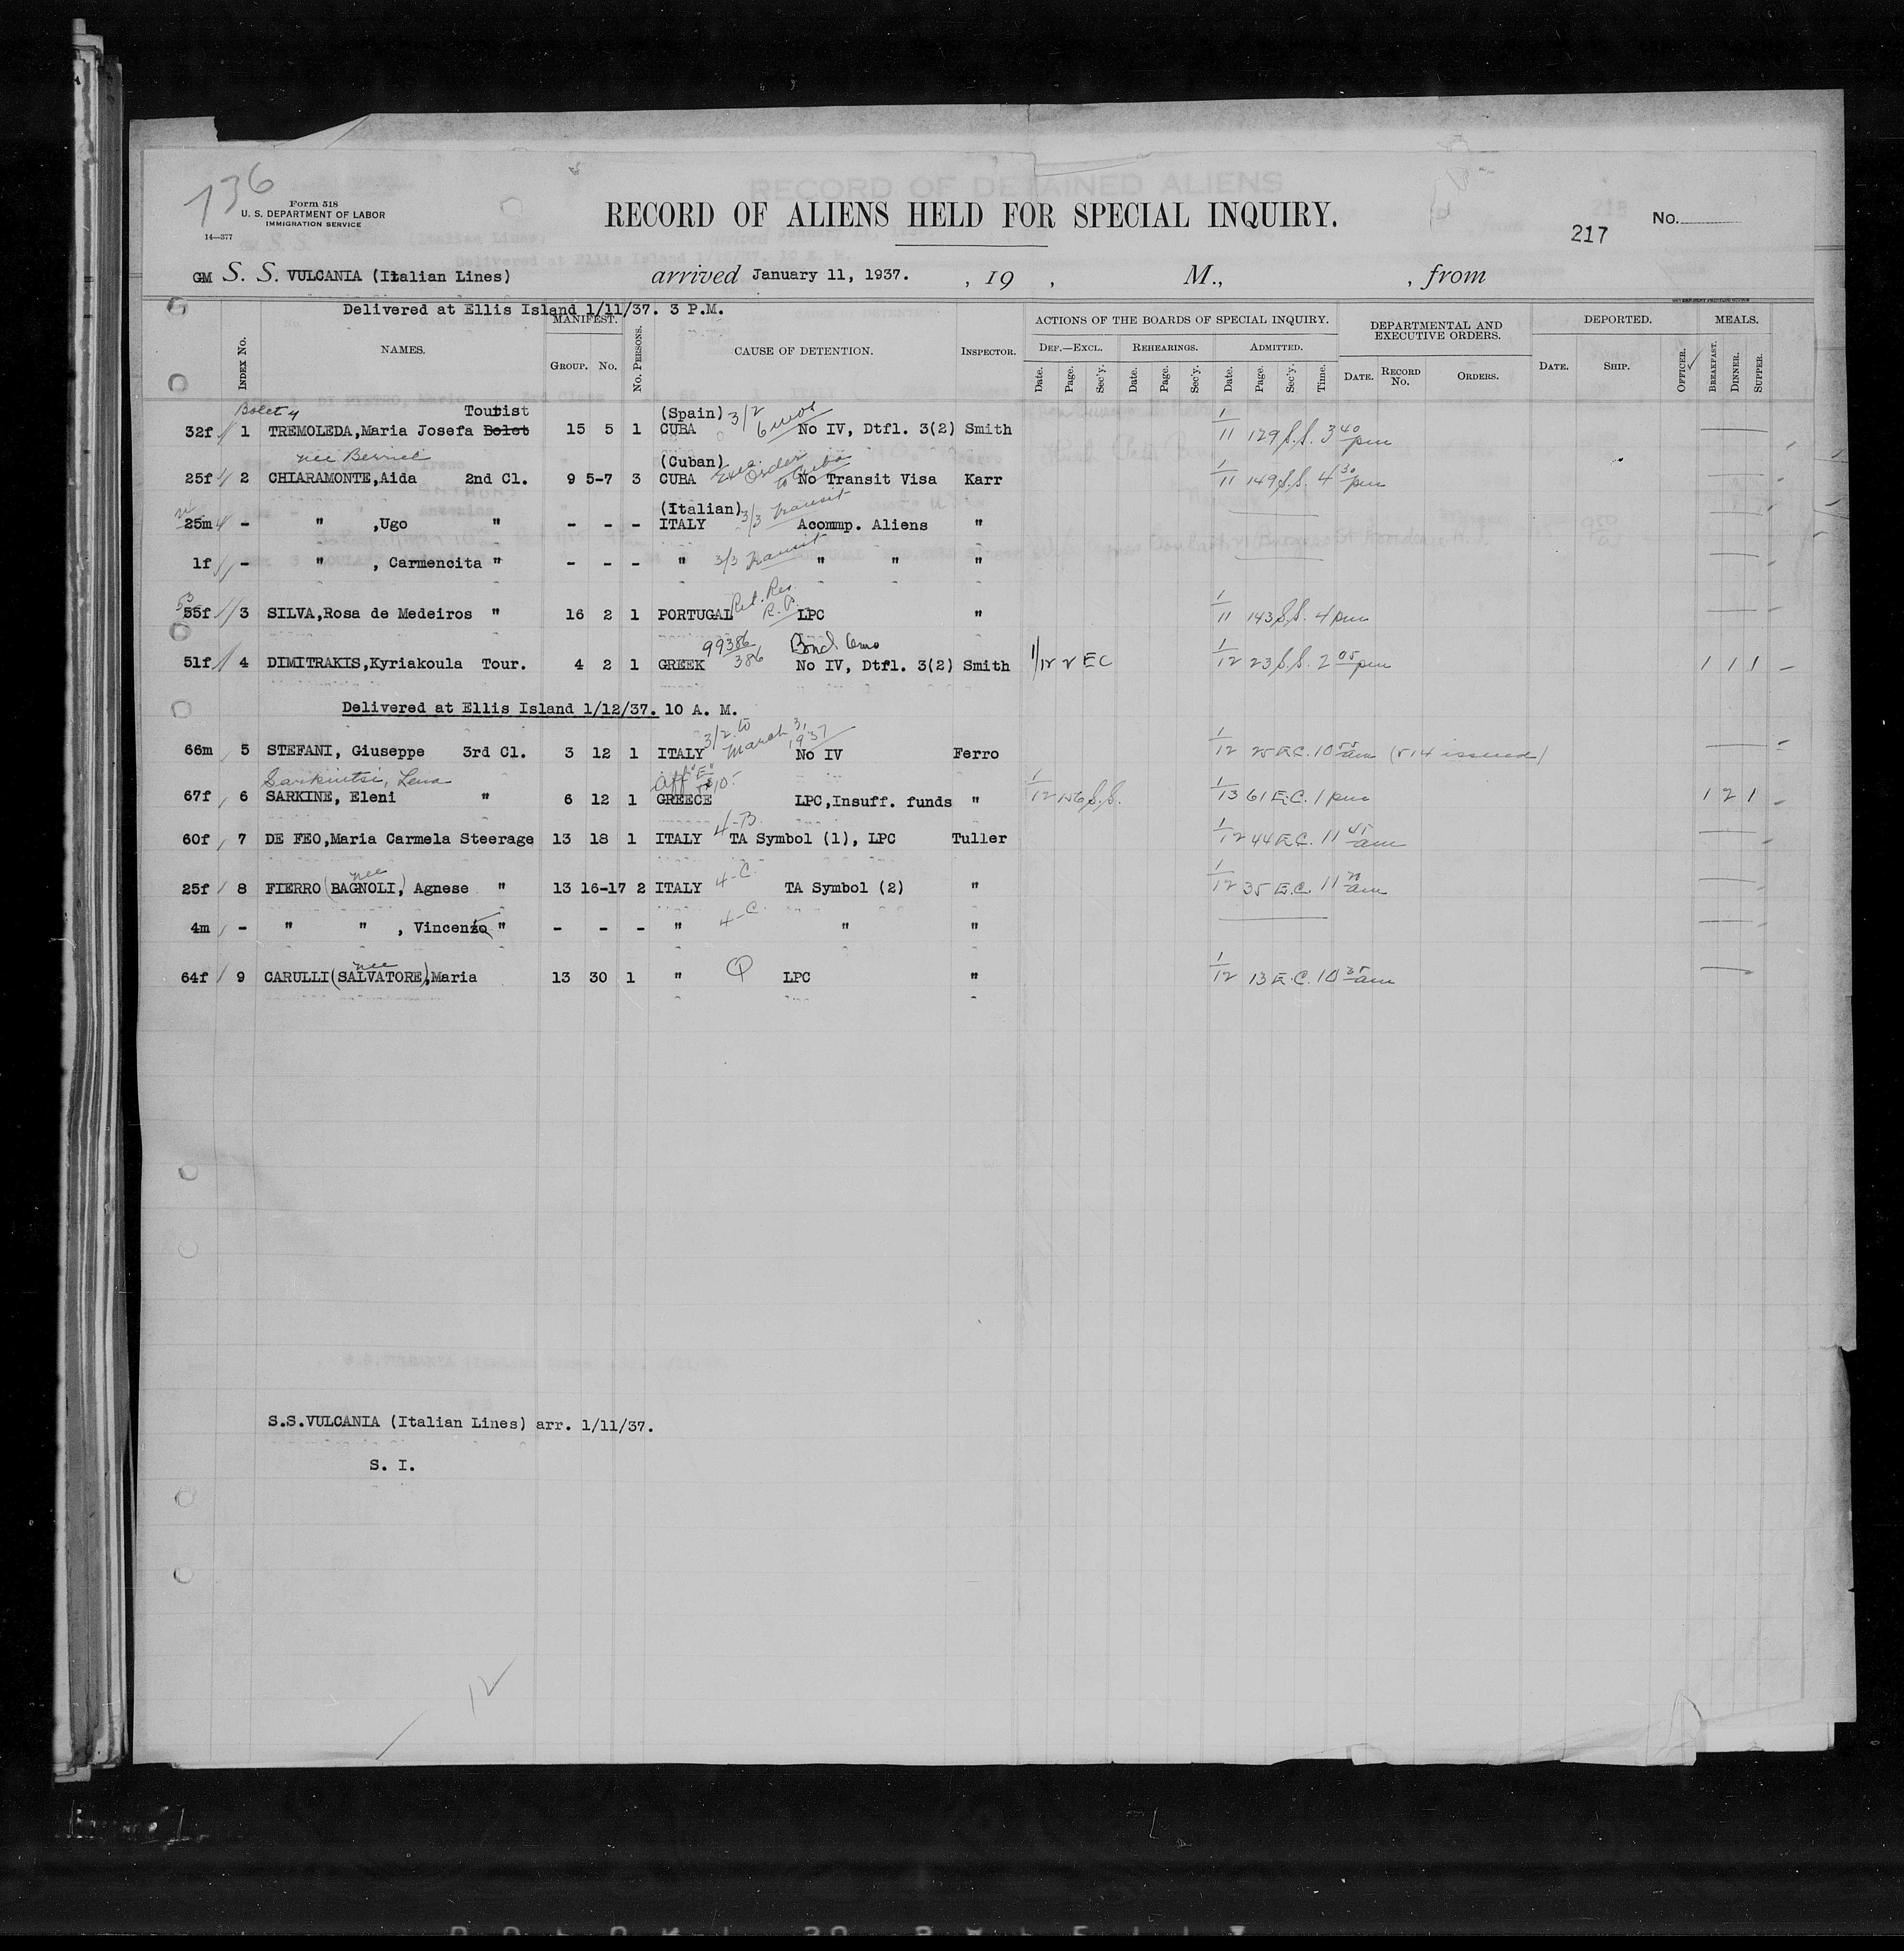 136
Form 518
U. S. DEPARTMENT OF LABOR
IMMIGRATION SERVICE
14—377
RECORD OF ALIENS HELD FOR SPECIAL INQUIRY.
No.
217
GM S. S. VULCANIA (Italian Lines) arrived January 11, 1937. , 19 , M., , from
Delivered at Ellis Island 1/11/37. 3 P.M.
INDEX No. NAMES. MANIFEST. GROUP. No. No. PERSONS. CAUSE OF DETENTION. INSPECTOR. ACTIONS OF THE BOARDS OF SPECIAL INQUIRY. DEPARTMENTAL AND EXECUTIVE ORDERS. DEPORTED. MEALS.
DEF.—EXCL. REHEARINGS. ADMITTED.
Date. Page. Sec'y. Date. Page. Sec'y. Date. Page. Sec'y. Time. DATE. RECORD No. ORDERS. DATE. SHIP. OFFICER. BREAKFAST. DINNER. SUPPER.
Bolet y Tourist (Spain) 3/2 6 mos
32f 1 TREMOLEDA,Maria Josefa Bolet 15 5 1 CUBA No IV, Dtfl. 3(2) Smith 1/11 129 S.S. 3 40 pm
nee Berriel (Cuban) Exec. Order to Cuba
25f 2 CHIARAMONTE,Aida 2nd Cl. 9 5-7 3 CUBA No Transit Visa Karr 1/11 149 S.S. 4 30 pm
(Italian) 3/3 Transit
25m - " ,Ugo " - - - ITALY Acommp. Aliens "
1f - " , Carmencita " - - - " 3/3 Transit " " "
53
55f 3 SILVA,Rosa de Medeiros " 16 2 1 PORTUGAL Ret. Res. R.P. LPC " 1/11 143 S.S. 4 pm
99386/386 Bond 6mo
51f 4 DIMITRAKIS,Kyriakoula Tour. 4 2 1 GREEK No IV, Dtfl. 3(2) Smith 1/12 2 EC 1/12 23 S.S. 2 05 pm 1 1 1 -
Delivered at Ellis Island 1/12/37. 10 A. M.
3/2 to March 3, 1937
66m 5 STEFANI, Giuseppe 3rd Cl. 3 12 1 ITALY No IV Ferro 1/12 25 E.C. 10 55 am (514 issued)
Sarkintsi, Lena Aff "E"
67f 6 SARKINE, Eleni " 6 12 1 GREECE LPC,Insuff. funds " 1/12 156 S.S. 1/13 61 E.C. 1 pm 1 2 1 -
60f 7 DE FEO,Maria Carmela Steerage 13 18 1 ITALY 4-B. TA Symbol (1), LPC Tuller 1/12 44 E.C. 11 45 am
25f 8 FIERRO (nee BAGNOLI,) Agnese " 13 16-17 2 ITALY 4-C. TA Symbol (2) " 1/12 35 E.C. 11 20 am
4m - " " , Vincenzo " - - - " 4-C. " "
64f 9 CARULLI (nee SALVATORE),Maria 13 30 1 " LPC " 1/12 13 E.C. 10 35 am
S.S.VULCANIA (Italian Lines) arr. 1/11/37.
S. I.
12